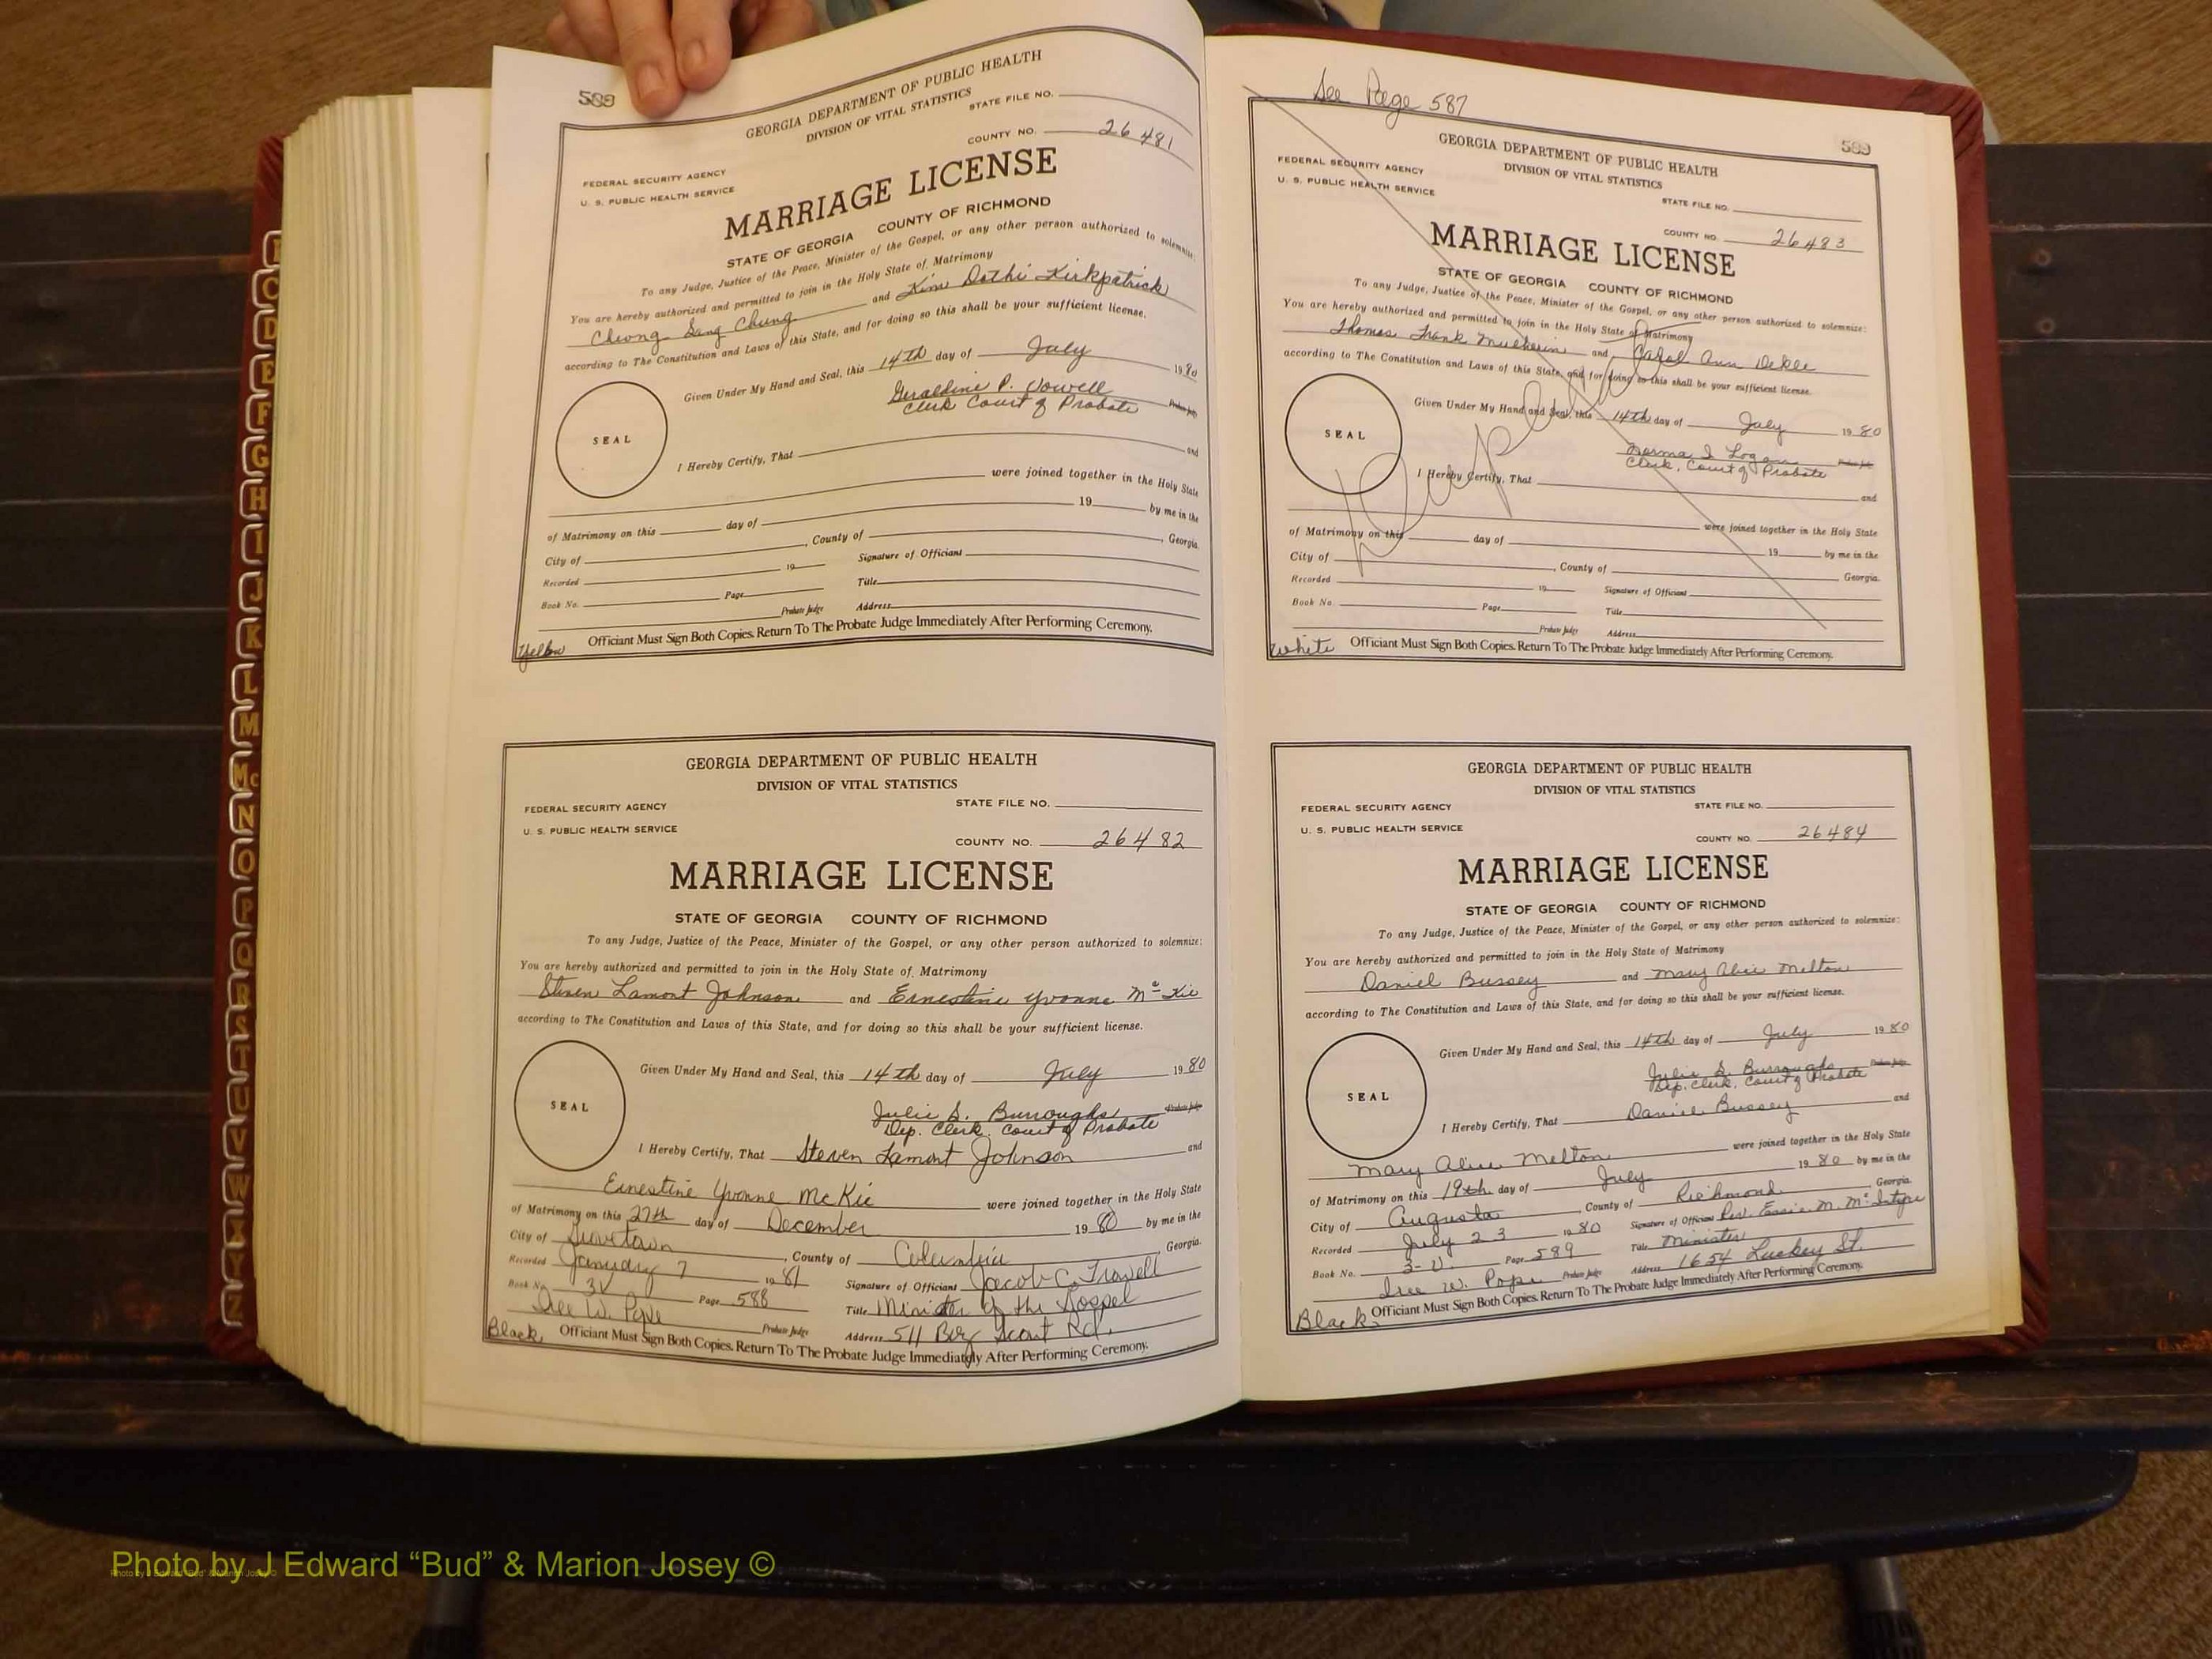 588
GEORGIA DEPARTMENT OF PUBLIC HEALTH
DIVISION OF VITAL STATISTICS
STATE FILE NO.
COUNTY NO. 26481
FEDERAL SECURITY AGENCY
U. S. PUBLIC HEALTH SERVICE
MARRIAGE LICENSE
STATE OF GEORGIA COUNTY OF RICHMOND
To any Judge, Justice of the Peace, Minister of the Gospel, or any other person authorized to solemnize:
You are hereby authorized and permitted to join in the Holy State of Matrimony
Cheong Sang Chung and Kim Dathi Kirkpatrick
according to The Constitution and Laws of this State, and for doing so this shall be your sufficient license.
Given Under My Hand and Seal, this 14th day of July 1980
Geraldine P. Vowell Probate Judge
Clerk Court of Probate
SEAL
I Hereby Certify, That and
were joined together in the Holy State
of Matrimony on this day of 19 by me in the
City of , County of , Georgia.
Recorded 19 Signature of Officiant
Book No. Page Title
Probate Judge Address
Officiant Must Sign Both Copies. Return To The Probate Judge Immediately After Performing Ceremony.
Yellow
GEORGIA DEPARTMENT OF PUBLIC HEALTH
DIVISION OF VITAL STATISTICS
FEDERAL SECURITY AGENCY STATE FILE NO.
U. S. PUBLIC HEALTH SERVICE
COUNTY NO. 26482
MARRIAGE LICENSE
STATE OF GEORGIA COUNTY OF RICHMOND
To any Judge, Justice of the Peace, Minister of the Gospel, or any other person authorized to solemnize:
You are hereby authorized and permitted to join in the Holy State of Matrimony
Steven Lamont Johnson and Ernestine Yvonne McKie
according to The Constitution and Laws of this State, and for doing so this shall be your sufficient license.
Given Under My Hand and Seal, this 14th day of July 1980
SEAL
Julie S. Burroughs Probate Judge
Dep. Clerk, Court of Probate
I Hereby Certify, That Steven Lamont Johnson and
Ernestine Yvonne McKie were joined together in the Holy State
of Matrimony on this 27th day of December 1980 by me in the
City of Grovetown, County of Columbia, Georgia.
Recorded January 7 1981 Signature of Officiant Jacob C. Trowell
Book No. 3V Page 588 Title Minister of the Gospel
Dee W. Pope Probate Judge Address 511 Boy Scout Rd.
Black Officiant Must Sign Both Copies. Return To The Probate Judge Immediately After Performing Ceremony.
See Page 587
589
GEORGIA DEPARTMENT OF PUBLIC HEALTH
DIVISION OF VITAL STATISTICS
FEDERAL SECURITY AGENCY
U. S. PUBLIC HEALTH SERVICE
STATE FILE NO.
COUNTY NO. 26483
MARRIAGE LICENSE
STATE OF GEORGIA COUNTY OF RICHMOND
To any Judge, Justice of the Peace, Minister of the Gospel, or any other person authorized to solemnize:
You are hereby authorized and permitted to join in the Holy State of Matrimony
Thomas Frank Mulherin and Carol Ann Dekle
according to The Constitution and Laws of this State, and for doing so this shall be your sufficient license.
Given Under My Hand and Seal, this 14th day of July 1980
SEAL
Norma I. Logan Probate Judge
Clerk, Court of Probate
I Hereby Certify, That and
were joined together in the Holy State
of Matrimony on this day of 19 by me in the
City of , County of Georgia.
Recorded 19 Signature of Officiant
Book No. Page Title
Probate Judge Address
White Officiant Must Sign Both Copies. Return To The Probate Judge Immediately After Performing Ceremony.
GEORGIA DEPARTMENT OF PUBLIC HEALTH
DIVISION OF VITAL STATISTICS
FEDERAL SECURITY AGENCY STATE FILE NO.
U. S. PUBLIC HEALTH SERVICE
COUNTY NO. 26484
MARRIAGE LICENSE
STATE OF GEORGIA COUNTY OF RICHMOND
To any Judge, Justice of the Peace, Minister of the Gospel, or any other person authorized to solemnize:
You are hereby authorized and permitted to join in the Holy State of Matrimony
Daniel Bussey and Mary Alice Melton
according to The Constitution and Laws of this State, and for doing so this shall be your sufficient license.
Given Under My Hand and Seal, this 14th day of July 1980
SEAL
Julie S. Burroughs Probate Judge
Dep. Clerk, Court of Probate
I Hereby Certify, That Daniel Bussey and
Mary Alice Melton were joined together in the Holy State
of Matrimony on this 19th day of July 1980 by me in the
City of Augusta, County of Richmond, Georgia.
Recorded July 23 1980 Signature of Officiant Rev. Essie M. McIntyre
Book No. 3-V Page 589 Title Minister
Dee W. Pope Probate Judge Address 1654 Luckey St.
Black Officiant Must Sign Both Copies. Return To The Probate Judge Immediately After Performing Ceremony.
C
D
E
F
G
H
I
J
K
L
M
Mc
N
O
P
Q
R
S
T
U
V
W
X
Y
Z
Photo by J Edward “Bud” & Marion Josey ©